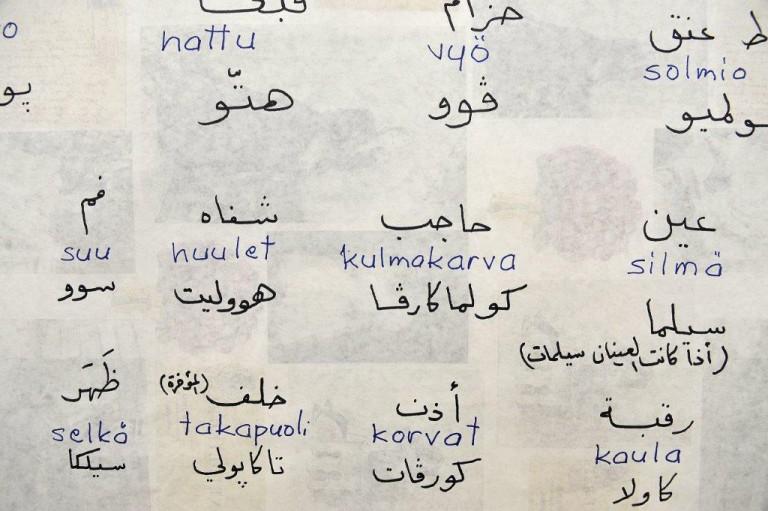 حزام
hattu
vyö
ط عنق
solmio
o
هتّو
ڤوو
ولميو
پو
فم
شفاه
حاجب
عين
suu
huulet
kulmakarva
silmä
سوو
هووليت
كولماكارڤا
سيلما
(أذا كانت العينان سيلمات)
ظَهَر
خلف
أذن
رقبة
selkä
takapuoli
korvat
kaula
سيلكا
تاكاپولي
كورڤات
كاولا